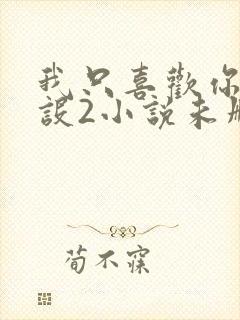 我只喜歡你
設2小說未
荀不寐